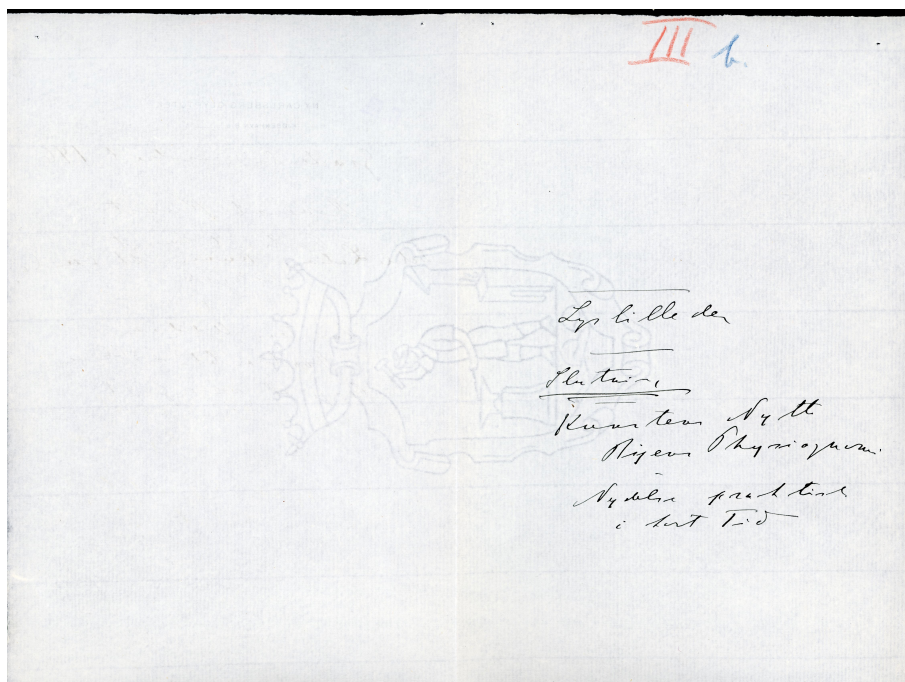 III b.
Lysbilleder
Slutning
Kunstens Nytte
Byens Physiognomi.
Nydelse praktisk
i kort Tid